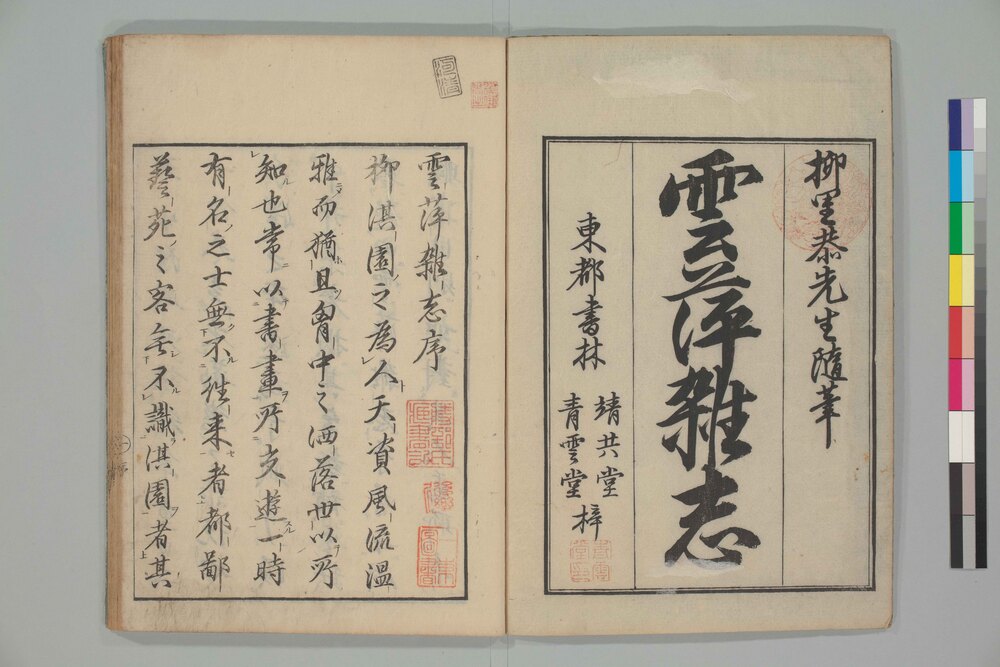 柳里恭先生随筆
雲萍雜志
東都書林
靖共堂
青雲堂
梓
雲萍雜志序
柳淇園之為人天資風流溫
雅而猶且胷中之洒落世以所
知也常以書畫所交遊一時
有名之士無不往来者都鄙
藝苑之客無不識淇園者其